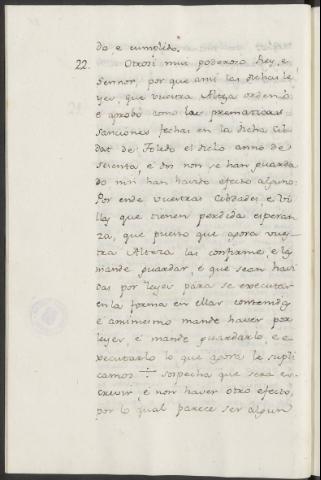 do, e cumplido.
22. Otrosi mui poderoso Rey, e
Sennor, por que ansi las dichas le
yes, que vuestra Alteza ordenó
e aprobó como las prematicas
sanciones fechas en la dicha Cib
dat de Toledo el dicho anno de
sesenta, e dos non se han guarda
do nin han havido efecto alguno:
Por ende vuestras Cibdades, e Vi
llas que tienen perdida esperan
za, que puesto que agora vues
tra Alteza las confirme, e las
mande guardar, e que sean havi
das por leyes para se executar
en la forma en ellas contenida,
e amimesmo mande haver por
leyes, e mande guardarlo, e e
xecutarlo lo que agora le supli
camos ÷ sospecha que sera es
crevir, e non haver otro efecto,
por lo qual parece ser algun